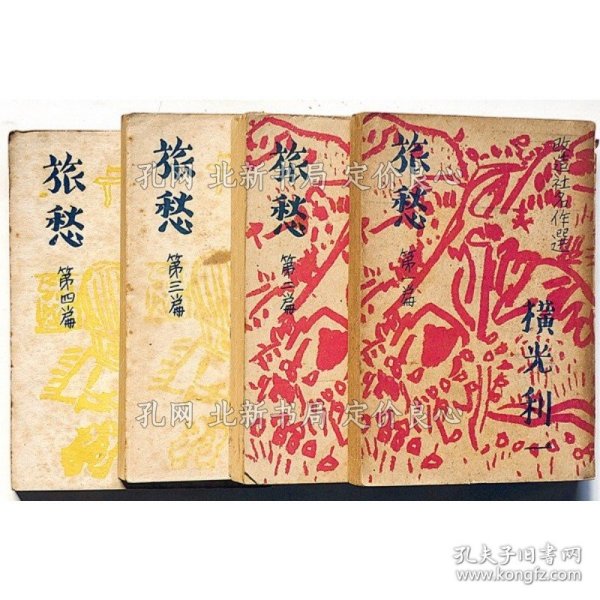 旅愁
第四篇
旅愁
第三篇
旅愁
第二篇
旅愁
第一篇
改造社名作選
横光利一
孔网 北新书局 定价良心
孔网 北新书局 定价良心
孔夫子旧书网
www.kongfz.com